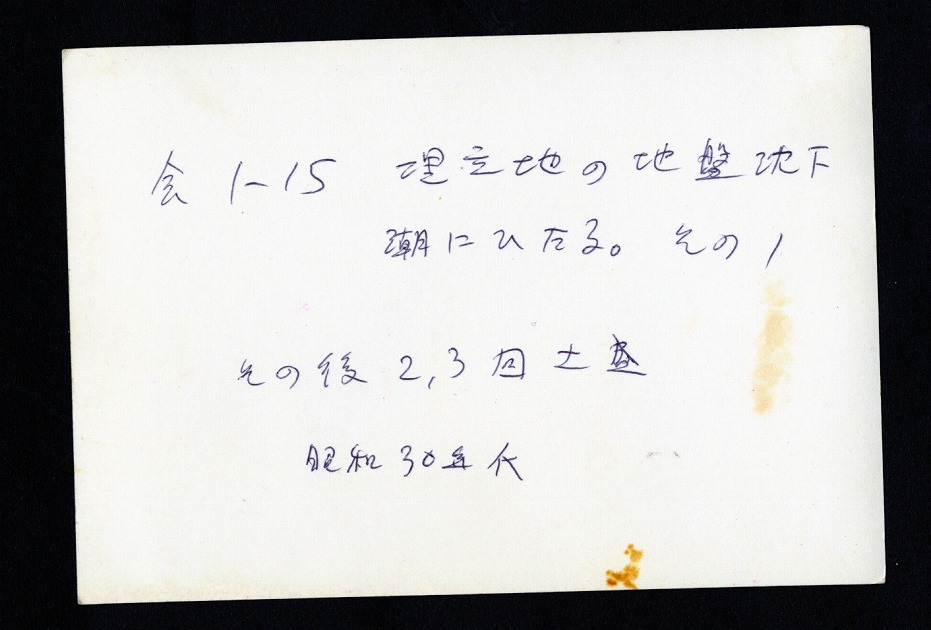 会 1-15 埋立地の地盤沈下
潮にひたる。 その1
その後 2,3回土盛
昭和30年代